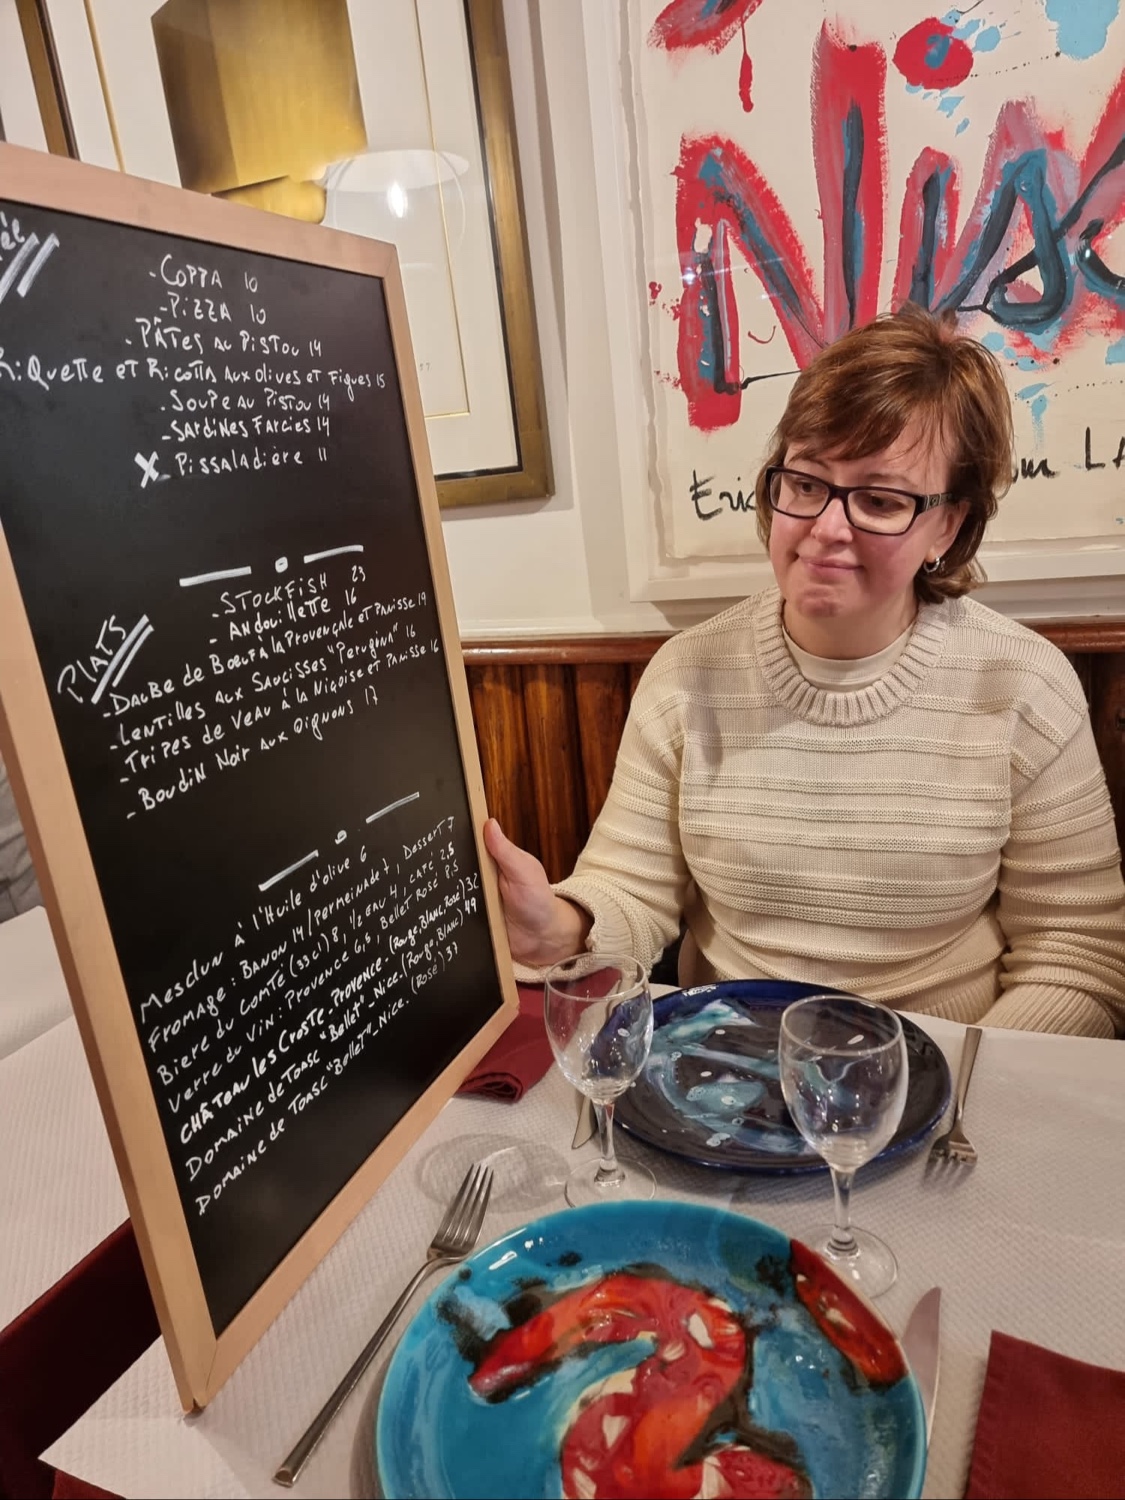 - COPPA 10
- PIZZA 10
- PÂTES AU PISTOU 14
RiQuette ET RicoTTA AUX OLIVES ET Figues 15
- SOUPE AU PISTOU 14
- SARDINES FARCIES 14
X - Pissaladière 11
PLATS
- STOCKFISH 23
- ANDOUILLETTE 16
- DAUBE de BŒUF À la PROVENÇALE ET PANISSE 19
- LENTILLES AUX SAUCISSES "Perugina" 16
- TRIPES DE VEAU à la Niçoise ET PANISSE 16
- BOUDIN NOIR AUX OIGNONS 17
Mesclun à l'Huile d'olive 6
FROMAGE : BANON 14 / , Dessert 7
Biere du COMTÉ (33cl) 8, 1/2 eau 4, café 2,5
Verre du VIN : Provence 6,5, Bellet Rosé 8,5
CHÂTEAU les CROSTE - Provence - (Rouge, BLANC, Rosé) 32
DOMAINE de TOASC "Bellet" - Nice. (Rouge, BLANC) 49
DOMAINE de TOASC "Bellet" - Nice. (Rosé) 37
Eric
LA